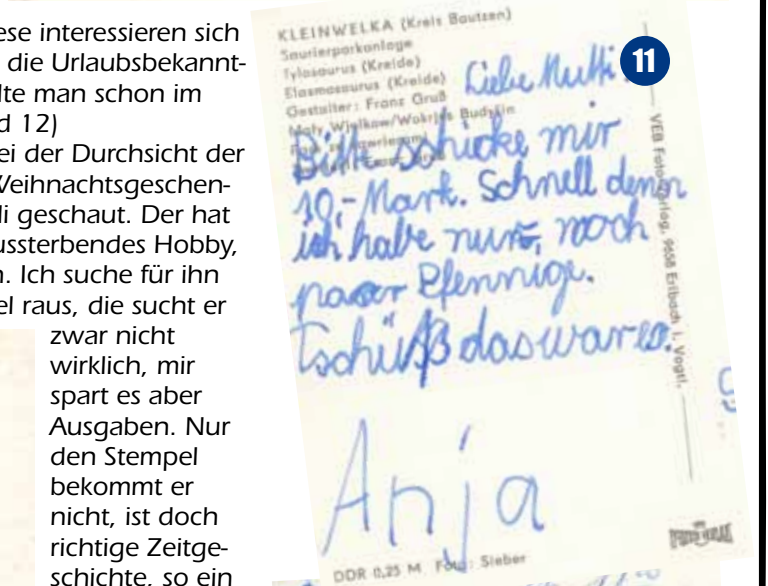 ese interessieren sich
die Urlaubsbekannt-
lte man schon im
d 12)
ei der Durchsicht der
Weihnachtsgeschen-
li geschaut. Der hat
ussterbendes Hobby,
n. Ich suche für ihn
el raus, die sucht er
zwar nicht
wirklich, mir
spart es aber
Ausgaben. Nur
den Stempel
bekommt er
nicht, ist doch
richtige Zeitge-
schichte, so ein
11
KLEINWELKA (Kreis Bautzen)
Saurierparkanlage
Tylosaurus (Kreide)
Elasmosaurus (Kreide)
Gestalter: Franz Gruß
Mały Wjelkow/Wokrjes Budyšin
Liebe Mutti!
Bitte schicke mir
10,- Mark. Schnell denn
ich habe nur, noch
paar Pfennige.
Tschüß das wares.
Anja
VEB Foto-Verlag, 9658 Erlbach i. Vogtl.
DDR 0,25 M Foto: Sieber